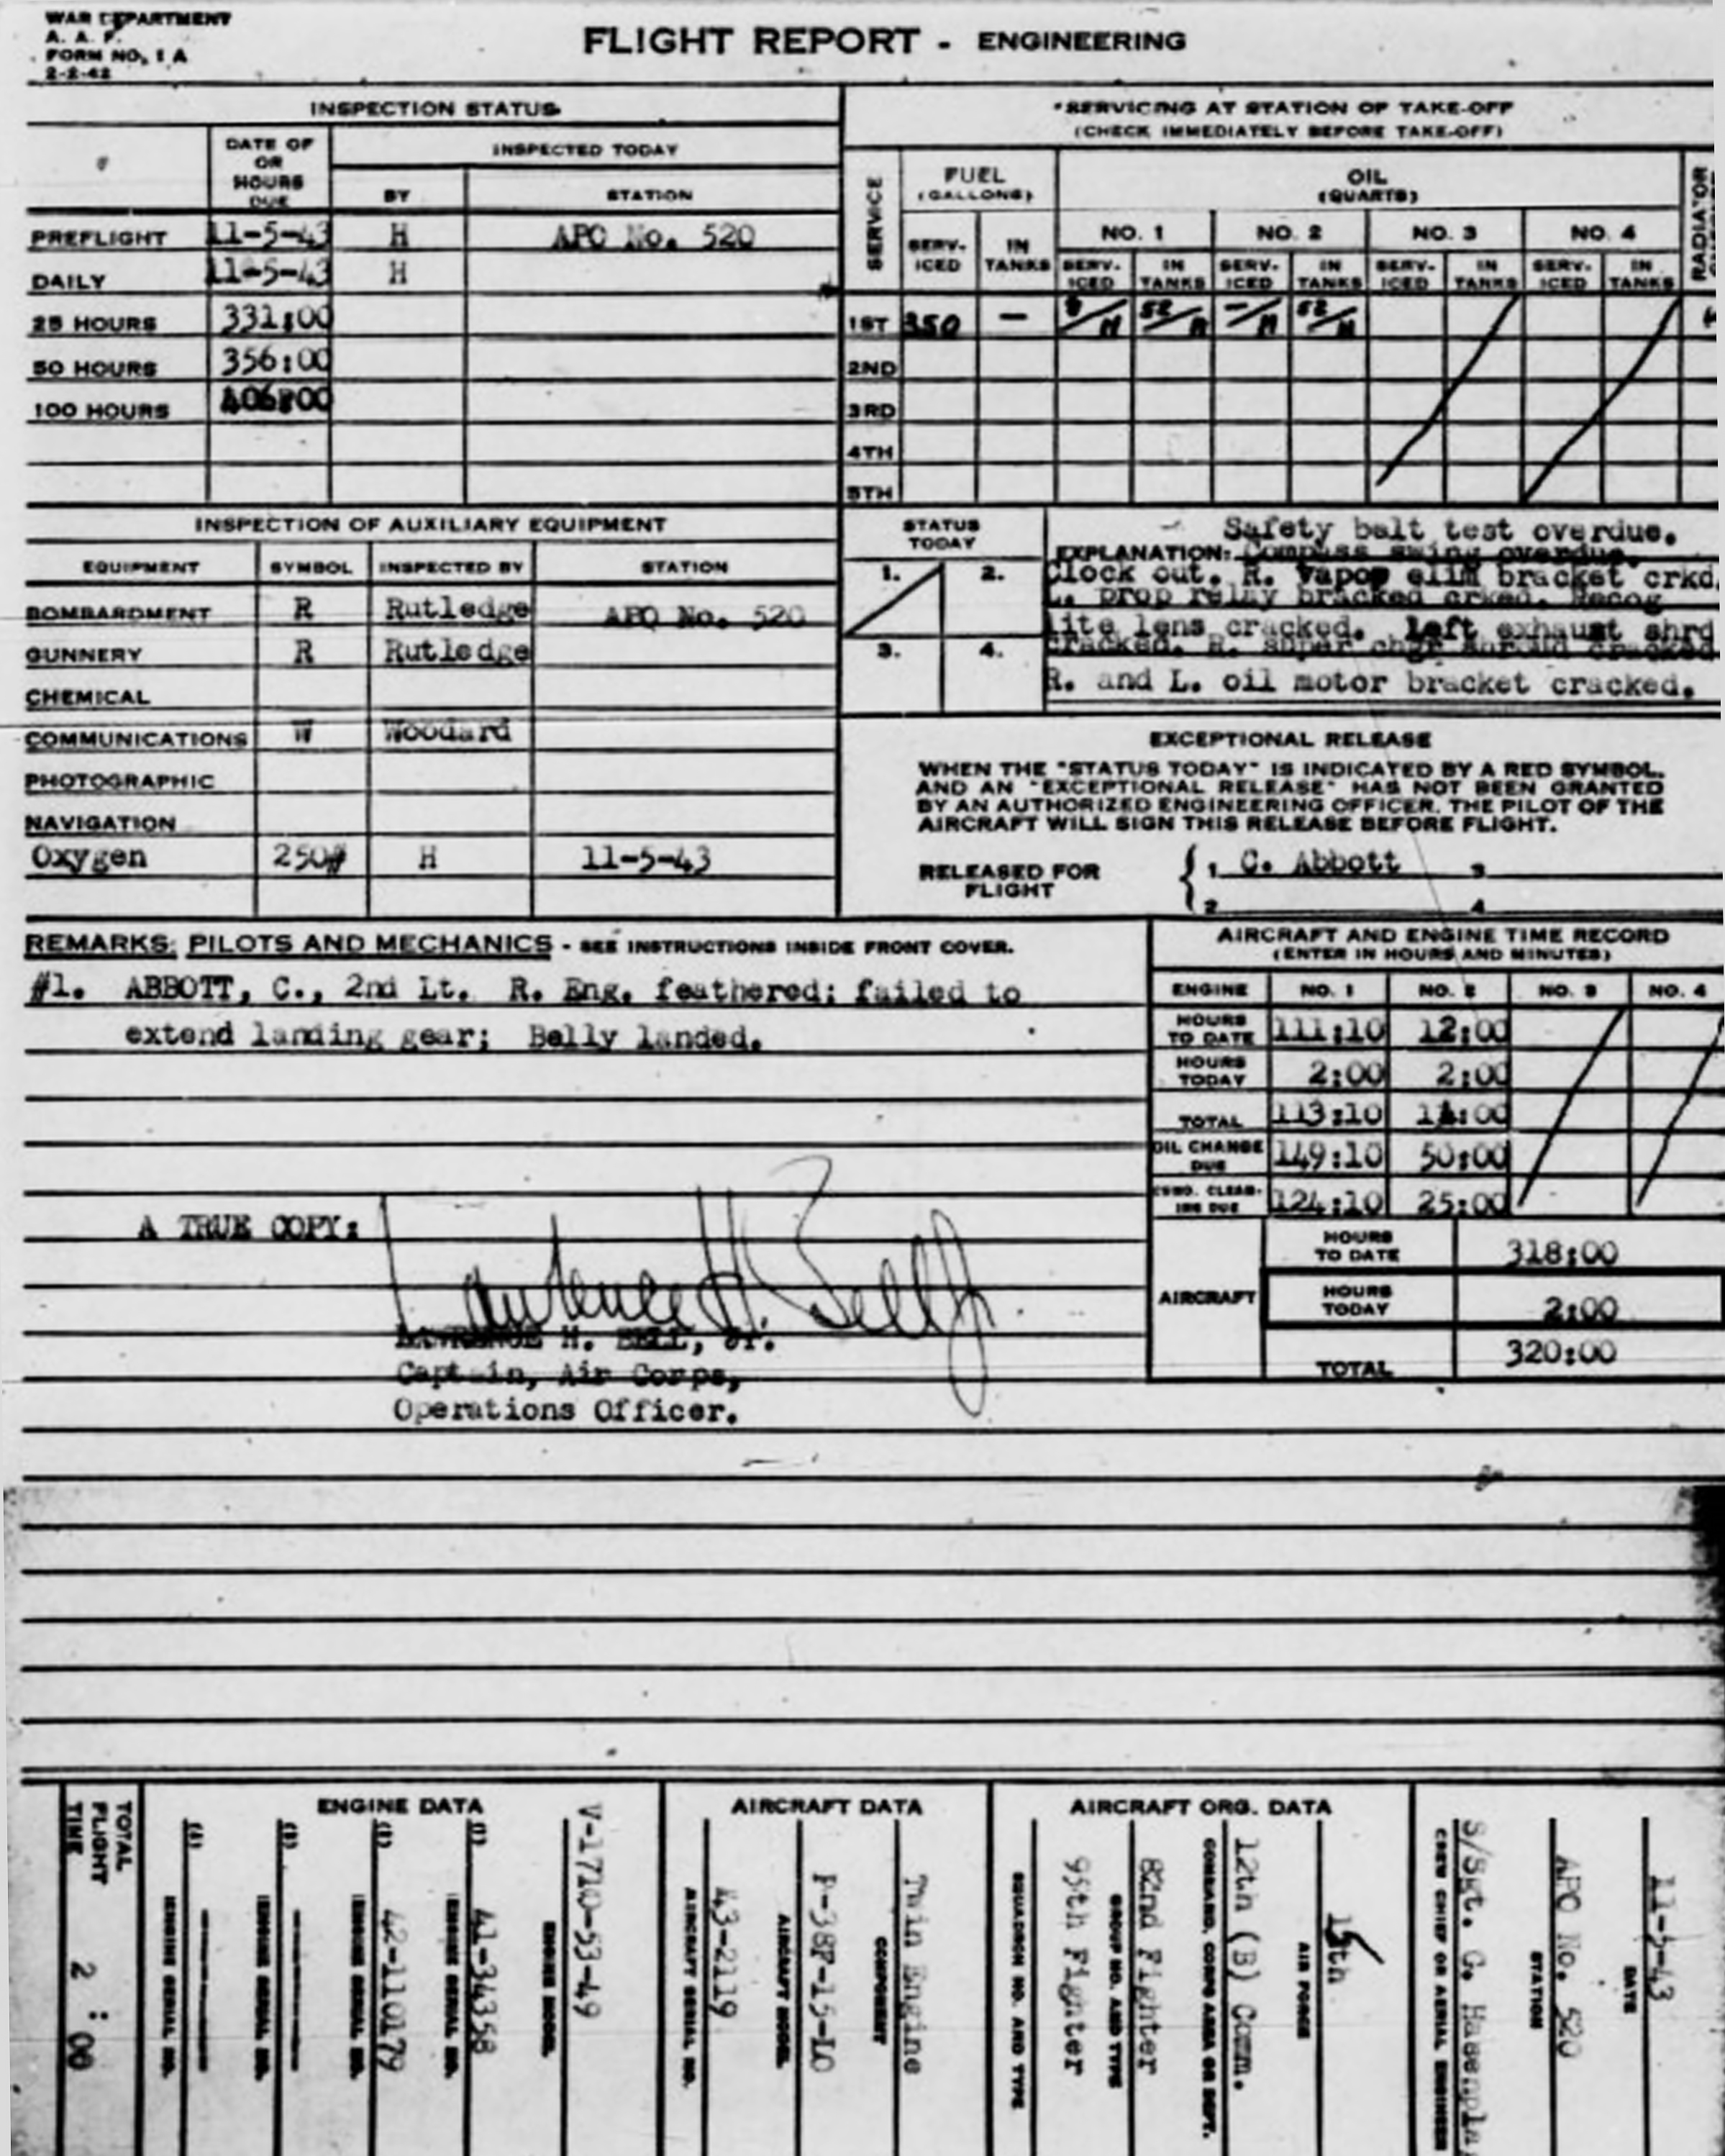 WAR DEPARTMENT
A. A. F.
FORM NO. 1 A
2-2-42
FLIGHT REPORT - ENGINEERING
INSPECTION STATUS
DATE OF OR HOURS DUE
INSPECTED TODAY
BY
STATION
PREFLIGHT 11-5-43 H APO No. 520
DAILY 11-5-43 H
25 HOURS 331:00
50 HOURS 356:00
100 HOURS 406:00
SERVICING AT STATION OF TAKE-OFF
(CHECK IMMEDIATELY BEFORE TAKE-OFF)
SERVICE
FUEL (GALLONS)
OIL (QUARTS)
RADIATOR
NO. 1 NO. 2 NO. 3 NO. 4
SERV-ICED IN TANKS SERV-ICED IN TANKS SERV-ICED IN TANKS SERV-ICED IN TANKS SERV-ICED IN TANKS
1ST 350 — 8/H 52/H -/H 52/H
2ND
3RD
4TH
5TH
INSPECTION OF AUXILIARY EQUIPMENT
EQUIPMENT SYMBOL INSPECTED BY STATION
BOMBARDMENT R Rutledge APO No. 520
GUNNERY R Rutledge
CHEMICAL
COMMUNICATIONS W Woodard
PHOTOGRAPHIC
NAVIGATION
Oxygen 250# H 11-5-43
STATUS TODAY
1. 2.
3. 4.
Safety belt test overdue.
EXPLANATION: Compass swing overdue.
Clock out. R. vapor elim bracket crkd.
L. prop relay bracked crked. Recog
lite lens cracked. Left exhaust shrd
cracked. R. super chgr shroud cracked
R. and L. oil motor bracket cracked.
EXCEPTIONAL RELEASE
WHEN THE "STATUS TODAY" IS INDICATED BY A RED SYMBOL,
AND AN "EXCEPTIONAL RELEASE" HAS NOT BEEN GRANTED
BY AN AUTHORIZED ENGINEERING OFFICER, THE PILOT OF THE
AIRCRAFT WILL SIGN THIS RELEASE BEFORE FLIGHT.
RELEASED FOR FLIGHT
1 C. Abbott 3
2 4
REMARKS: PILOTS AND MECHANICS - SEE INSTRUCTIONS INSIDE FRONT COVER.
#1. ABBOTT, C., 2nd Lt. R. Eng. feathered; failed to
extend landing gear; Belly landed.
AIRCRAFT AND ENGINE TIME RECORD
(ENTER IN HOURS AND MINUTES)
ENGINE NO. 1 NO. 2 NO. 3 NO. 4
HOURS TO DATE 111:10 12:00
HOURS TODAY 2:00 2:00
TOTAL 113:10 14:00
OIL CHANGE DUE 149:10 50:00
CUNO. CLEAN-ING DUE 124:10 25:00
AIRCRAFT
HOURS TO DATE 318:00
HOURS TODAY 2:00
TOTAL 320:00
A TRUE COPY:
Lawrence H. Bell Jr
LAWRENCE H. BELL, Jr.
Captain, Air Corps,
Operations Officer.
TOTAL FLIGHT TIME 2 : 00
ENGINE DATA
(4) ENGINE SERIAL NO.
(3) ENGINE SERIAL NO.
(2) 42-110179 ENGINE SERIAL NO.
(1) 41-34358 ENGINE SERIAL NO.
V-1710-53-49 ENGINE MODEL
AIRCRAFT DATA
43-2119 AIRCRAFT SERIAL NO.
P-38F-15-LO AIRCRAFT MODEL
Twin Engine COMPONENT
AIRCRAFT ORG. DATA
SQUADRON NO. AND TYPE
95th Fighter
82nd Fighter GROUP NO. AND TYPE
12th (B) Comm. COMMAND, CORPS AREA OR DEPT.
15th AIR FORCE
S/Sgt. C. CREW CHIEF OR AERIAL ENGINEER
APO No. 520 STATION
11-5-43 DATE